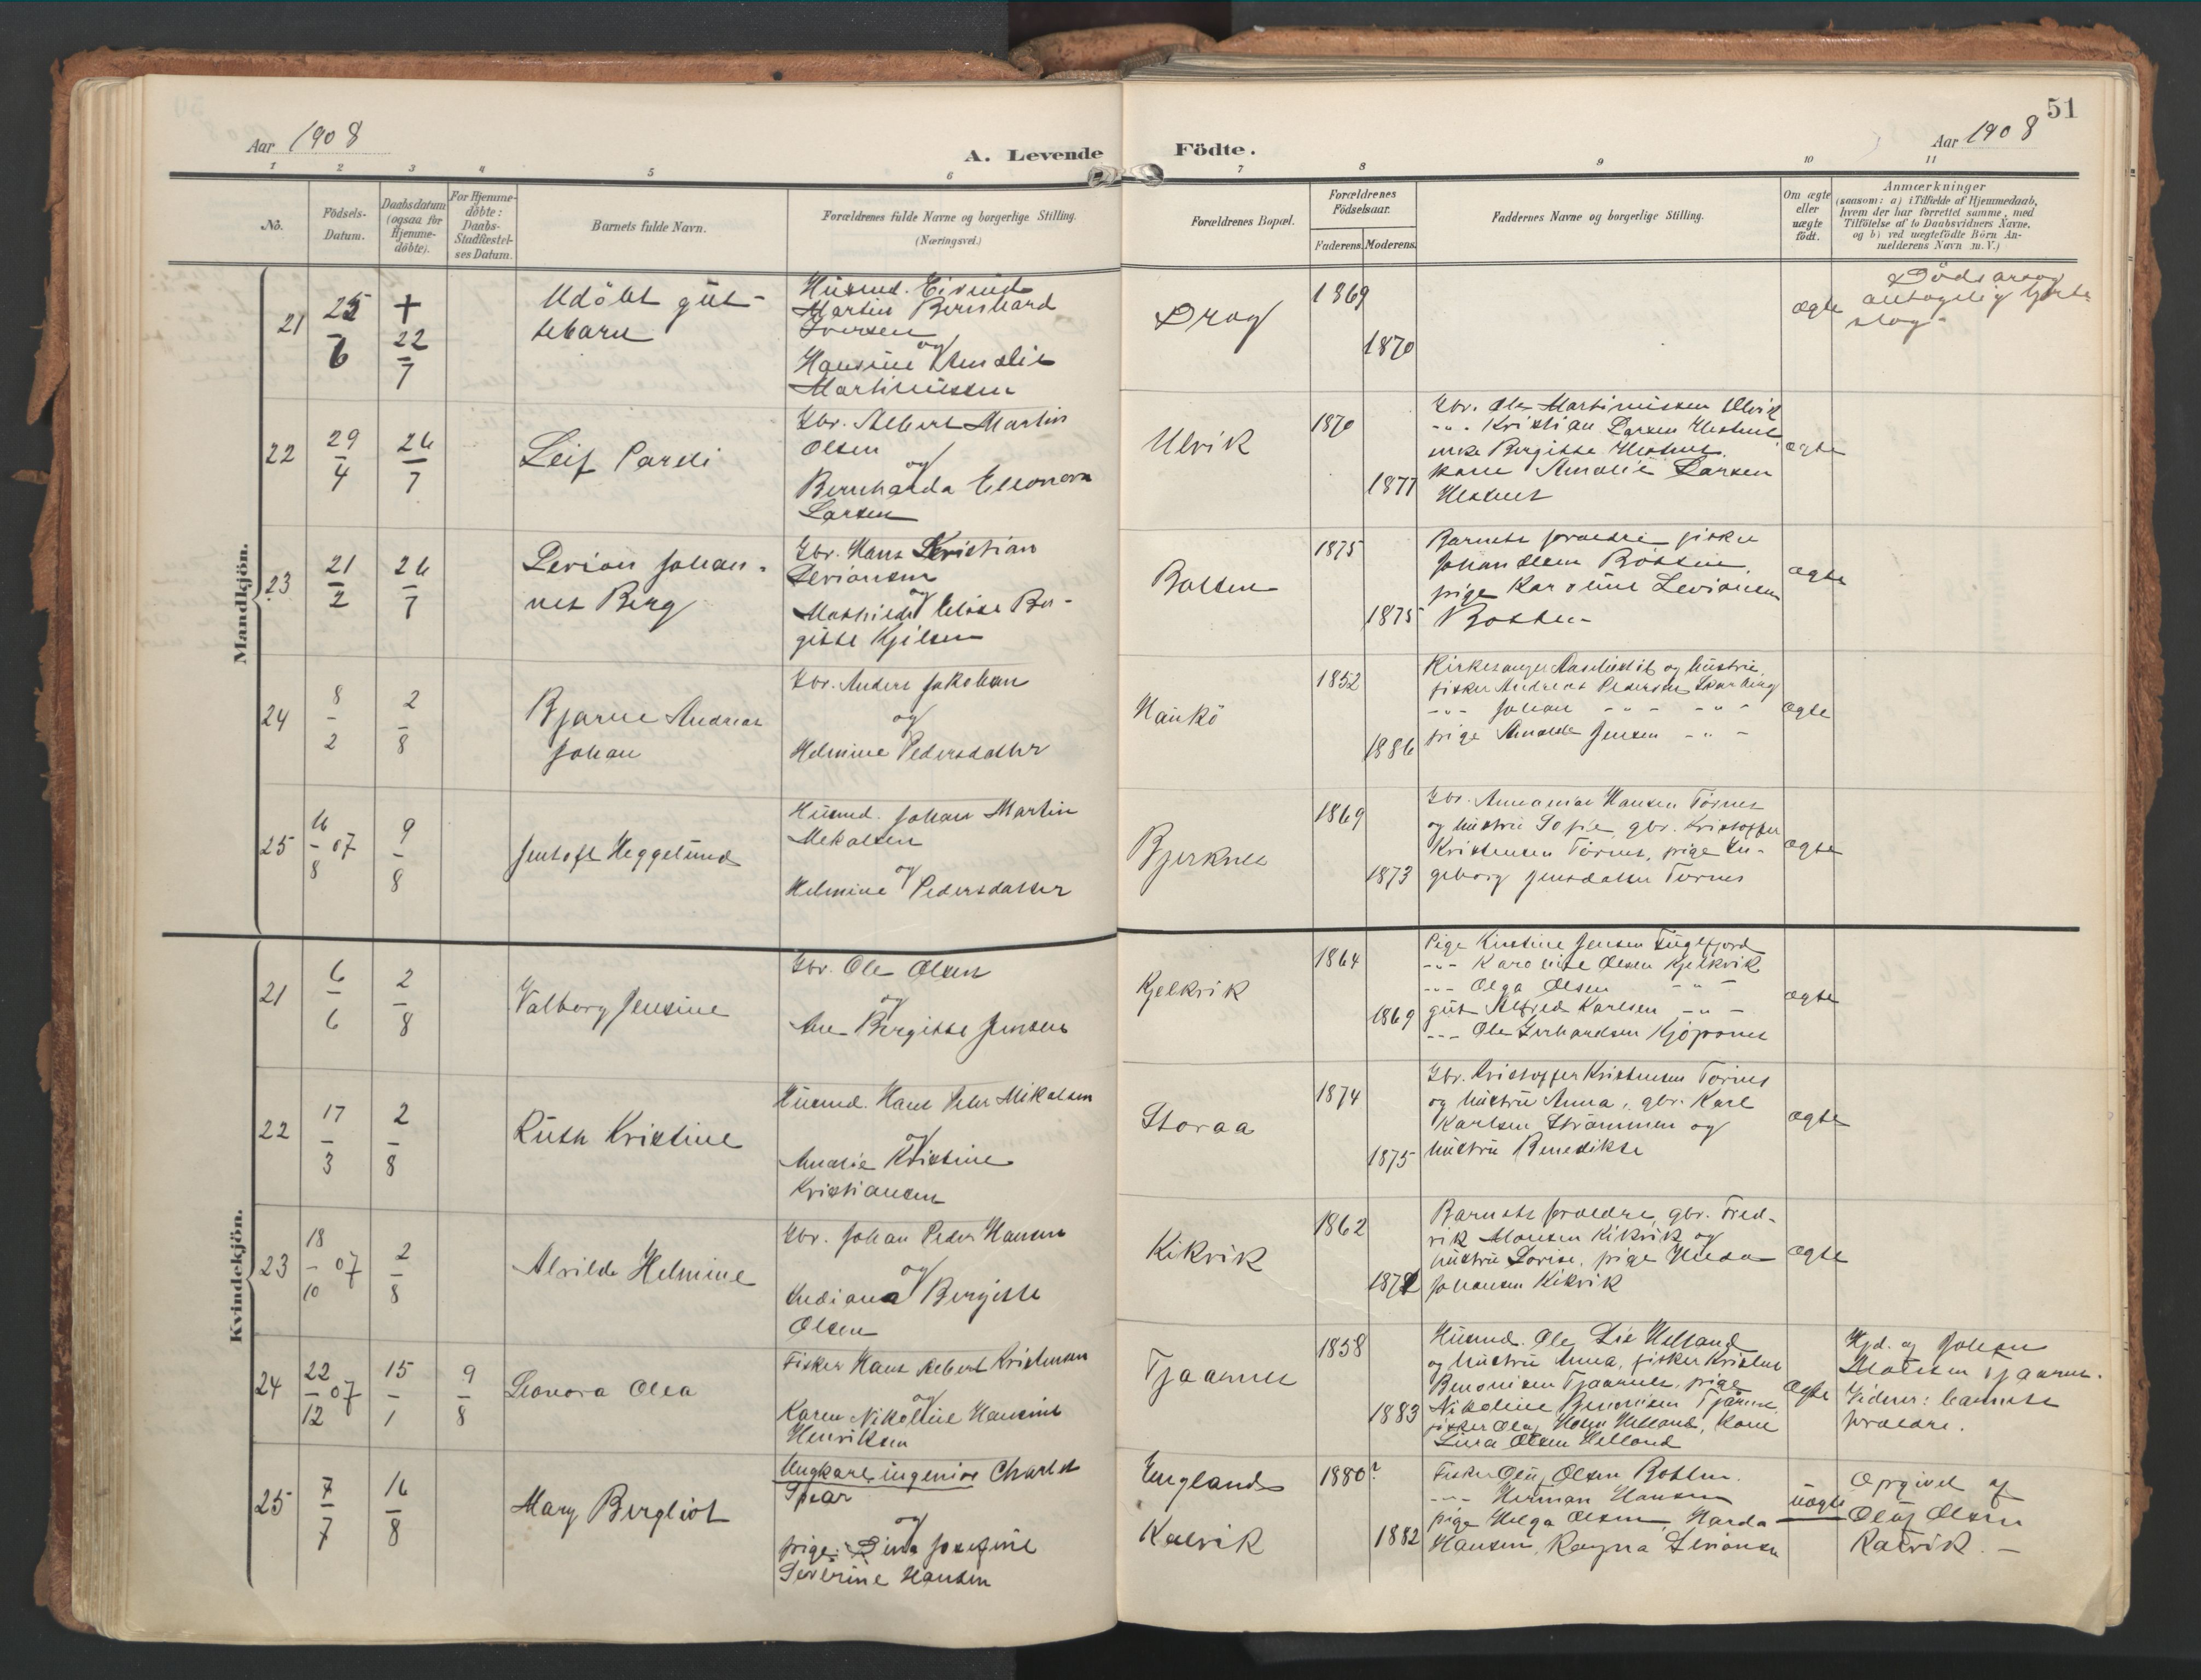 51
Aar 1908
A. Levende
Födte.
Aar 1908
1 2 3 4 5 6 7 8 9 10 11
No.
Födsels-
Datum.
Daabsdatum
(ogsaa for
Hjemme-
döbte).
For Hjemme-
döbte:
Daabs-
Stadfæstel-
ses Datum.
Barnets fulde Navn.
Forældrenes fulde Navne og borgerlige Stilling.
(Næringsvei.)
Forældrenes Bopæl.
Forældrenes
Födselsaar.
Faderens. Moderens.
Faddernes Navne og borgerlige Stilling.
Om ægte
eller
uægte
födt.
Anmærkninger
(saasom: a) i Tilfælde af Hjemmedaab,
hvem der har forrettet samme, med
Tilföielse af to Daabsvidners Navne,
og b) ved uægtefödte Börn An-
melderens Navn m. V.)
Mandkjön.
21
25/6
+ 22/7
Udöbt gut-
tebarn
Husmd. Eivind
Martin Bernhard
Iversen
og
Hansine Amalie
Martinussen
Drag
1869
1870
ægte
Dödsaarsag
antagelig hjerte
slag
22
29/4
26/7
Leif Pareli
Gbr. Albert Martin
Olsen
og
Bernharda Eleonora
Larsen
Ulvik
1870
1877
Gbr. Ole Martinussen Ulvik
-"- Kristian Larsen
enke Birgitte
kone Amalie Larsen
ægte
23
21/2
26/7
Levion Johan-
nes Berg
Gbr. Hans Kristian
Levionsen
og
Mathilde Elise Ber-
gitte Kjilsen
Botten
1875
1875
Barnets foraldre fisker
Johan Olsen Botten,
pige Karoline Levionsen
Botten
ægte
24
8/2
2/8
Bjarne Andreas
Johan
Gbr. Anders Jakobsen
og
Helmine Pedersdatter
Haukö
1852
1886
Kirkesanger og hustru,
fisker Andreas Pedersen
-"- Johan -"- -"-
pige Amalie Jensen -"-
ægte
25
16/8 07
9/8
Jentoft Heggelund
Husmd. Johan Martin
Mekalsen
og
Helmine Pedersdatter
Bjerknes
1869
1873
Gbr. Hansen Törnes
og hustru Sofie, gbr. Kristoffer
Kristensen Törnes, pige In-
geborg Jensdatter Törnes
ægte
Kvindekjön.
21
6/6
2/8
Valborg Jensine
Gbr. Ole Olsen
og
Ane Birgitte Jensen
Kjelkvik
1864
1869
Pige Kirstine Jensen Fuglfjord
-"- Karoline Olsen Kjelkvik
-"- Olga Olsen -"-
gut Alfred Karlsen -"-
-"- Ole Gerhardsen Kjöpsnes
ægte
22
17/3
2/8
Ruth Kristine
Husmd. Hans Peter Mikalsen
og
Amalie Kristine
Kristiansen
Storaa
1874
1875
Gbr. Kristoffer Kristensen Törnes
og hustru Anna, gbr. Karl
Karlsen Strömmen og
hustru Benedikte
ægte
23
18/10 07
2/8
Alvilde Helmine
Gbr. Johan Peder Hansen
og
Indiana Bergitte
Olsen
Kikvik
1862
1872
Barnets foraldre, gbr. Fred-
rik Monsen Kikvik og
hustru Lovise, pige Hilda
Johansen Kikvik
ægte
24
22/12 07
15/1
9/8
Leonora Olea
Fisker Hans Albert Kristensen
og
Karen Nikoline Hansine
Henriksen
Tjaarnes
1858
1883
Husmd. Ole Lie Helland
og hustru Anna, fisker Kristen
Benonisen Tjaarnes, pige
Nikoline Benonisen Tjaarnes,
fisker Olaf Helland, kone
Olsen Helland
ægte
Hjd. af Johan
Tjaarnes.
Vidner: barnets
foraldre.
25
7/7
16/8
Mary Bergliot
Ungkarl, ingeniør Charles
Spear
og
pige: Dina Josefine
Severine Hansen
England
Kalvik
1880?
1882
Fisker Oluf Olsen Botten.
-"- Herman Hansen
pige Helga Olsen, Harda
Hansen, Ragna Levionsen
uægte
Opgivet af
Oluf Olsen
Kalvik. –